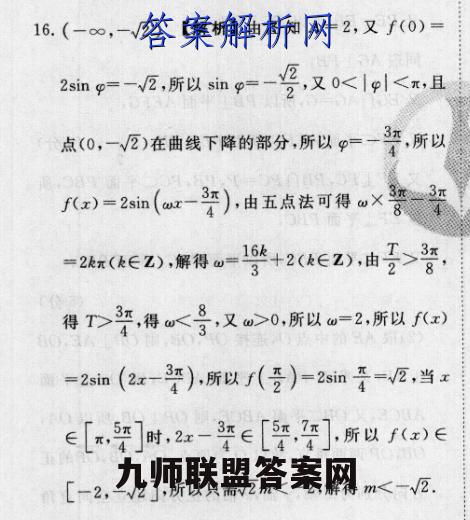 16. (-∞,-√2) 答案解析网 由 知 =2,又 f(0)=
2sin φ=-√2,所以 sin φ=-√2/2,又 0<|φ|<π,且
点(0,-√2)在曲线下降的部分,所以 φ=-3π/4,所以
f(x)=2sin(ωx-3π/4),由五点法可得 ω×3π/8-3π/4
=2kπ(k∈Z),解得 ω=16k/3+2(k∈Z),由T/2>3π/8,
得 T>3π/4,得 ω<8/3,又 ω>0,所以 ω=2,所以 f(x)
=2sin(2x-3π/4),所以 f(π/2)=2sin π/4=√2,当 x
∈[π,5π/4]时,2x-3π/4∈[5π/4,7π/4],所以 f(x)∈
九师联盟答案网
[-2,-√2],所以只需√2m< 解得 m<-√2.